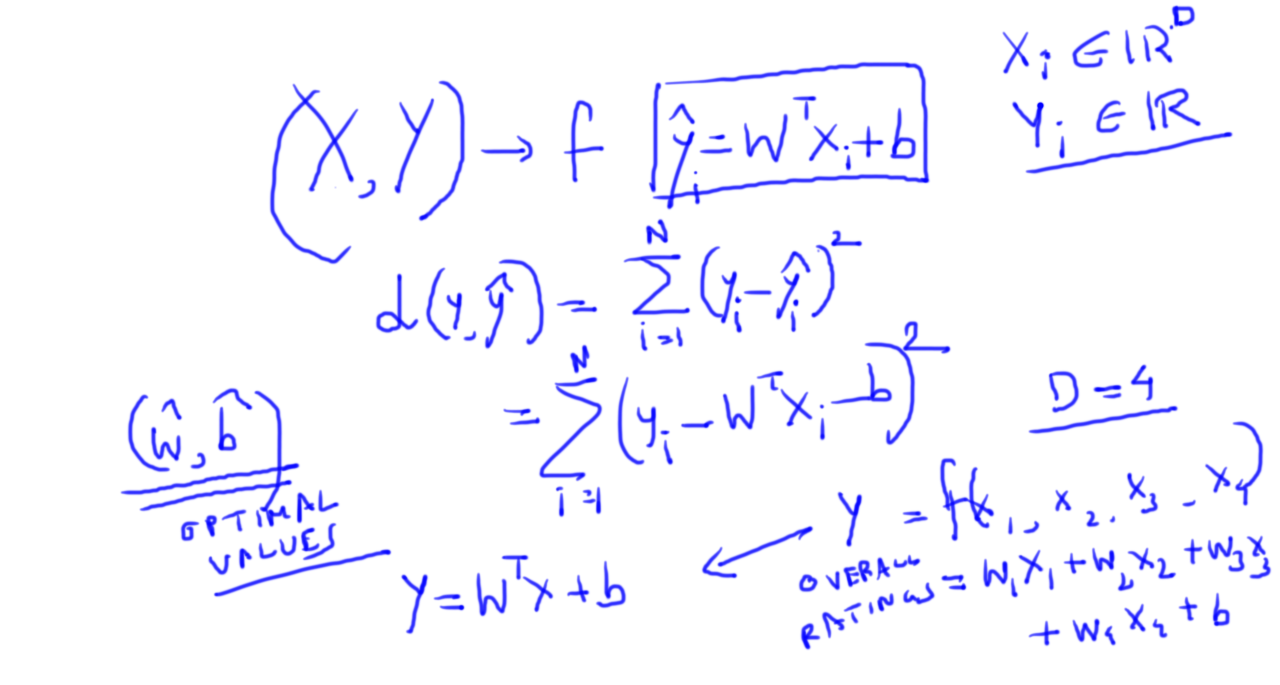 (X, Y) → f  ŷᵢ = Wᵀxᵢ + b
xᵢ ∈ ℝᴰ
Yᵢ ∈ ℝ
d(y, ŷ) = ∑ᵢ₌₁ᴺ (yᵢ − ŷᵢ)²
= ∑ᵢ₌₁ᴺ (yᵢ − Wᵀxᵢ − b)²
D = 4
(ŵ, b̂)
OPTIMAL
VALUES
Y = f(x₁, x₂, x₃ - x₄)
OVERALL
RATINGS = W₁X₁ + W₂X₂ + W₃X₃
+ W₄X₄ + b
Y = WᵀX + b